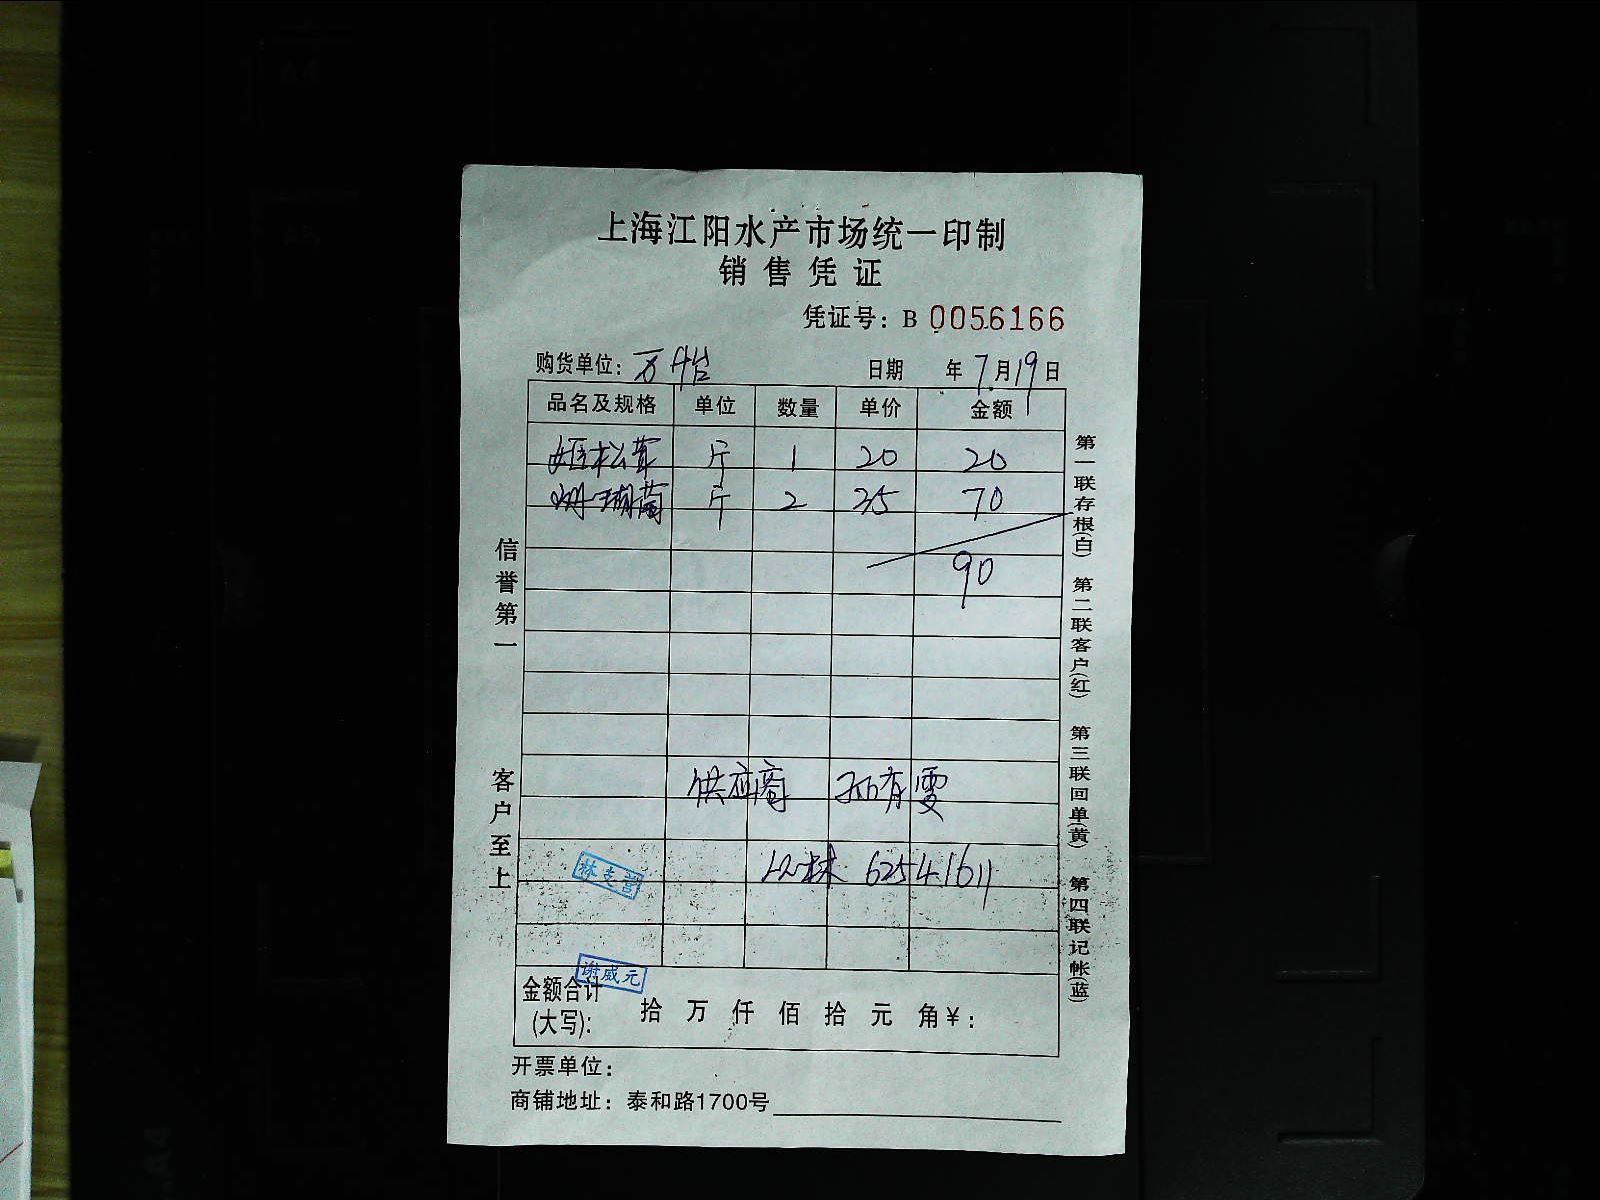 上海江阳水产市场统一印制
销售凭证
凭证号：B 0056166
购货单位：万 日期 年 7 月 19 日
品名及规格 单位 数量 单价 金额
姬松茸 斤 1 20 20
珊瑚菌 斤 2 35 70
90
供应商 孙有雯
林 62541611
林支
谢威元
金额合计
(大写)： 拾 万 仟 佰 拾 元 角 ¥：
开票单位：
商铺地址：泰和路1700号
信誉第一
客户至上
第一联存根(白) 第二联客户(红) 第三联回单(黄) 第四联记帐(蓝)